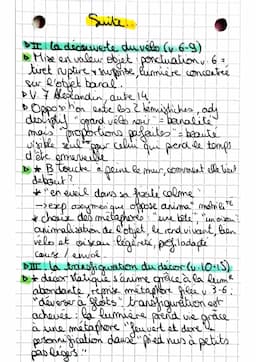 Suite.
II : la découverte du vélo (v 6-9)
Mise en valeur objet ponctuation v. 6 =
tiret rupture + surprise, lumière concentrée
sur l'objet banal.
V. 7 Alexandrin, autre 14
Opposition entre les 2 hémistiches, adj
"grand vélo noir" = banalité
mais "proportions parfaites" = beauté
visible seul pour celui qui prend le temps
d'être émerveillé
* B Touche à peine le mur, comment elle
debout ?
* "en éveil dans sa froide calme"
→ exp oxymorique oppose anima
* choix des métaphores "une bête", "un oiseau"
animalisation de l'objet, le rend vivant, lien
vélo et oiseau légèreté,
course / envol.
III : la transfiguration du décor (v 10-13)
+ décor s'anime grâce à la lum
abondante, reprise métaphore filée v 3-6,
"déverse à flots", transfiguration est
achevée : la lumière prend vie grâce
à une métaphore "fou vert et doré"
personnification danse "pied nus à petits
pas légers"